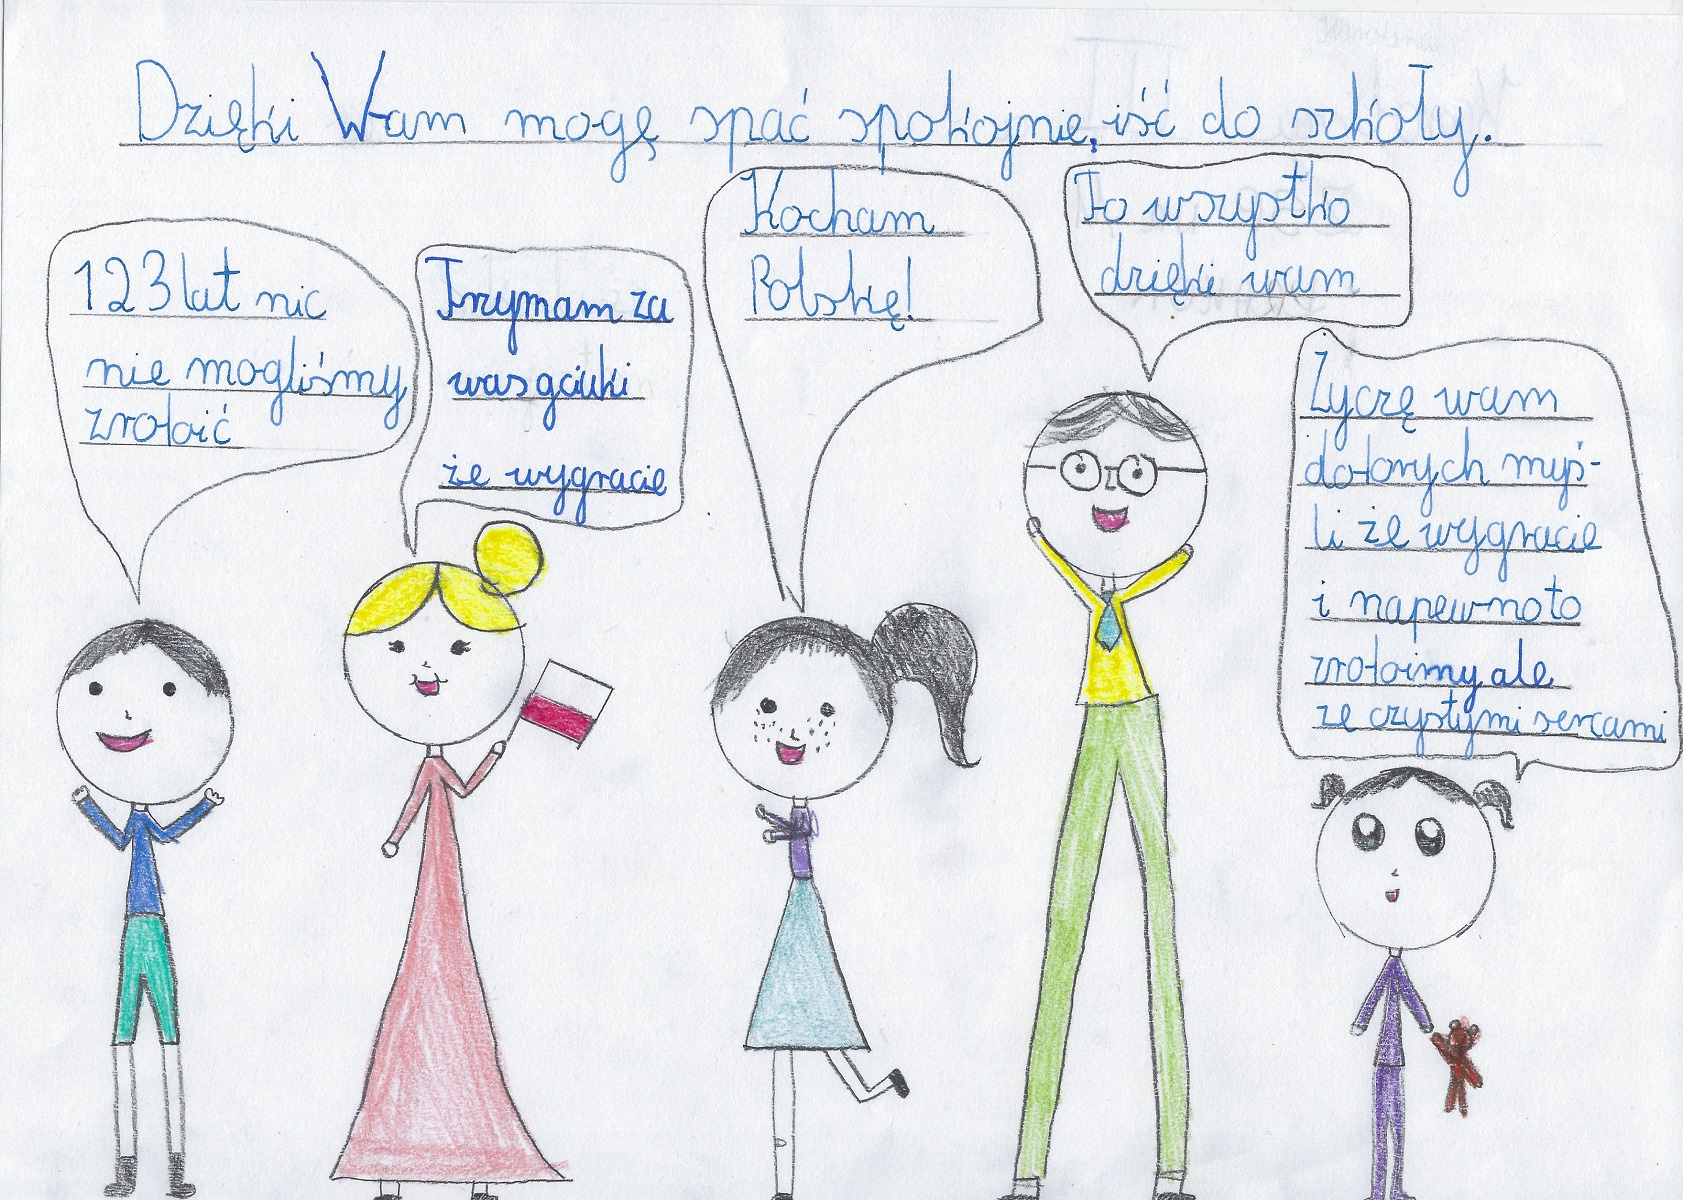 Dzięki Wam mogę spać spokojnie, iść do szkoły.
123 lat nic
nie mogliśmy
zrobić
Trzymam za
was gciuki
że wygracie
Kocham
Polskę!
To wszystko
dzięki wam
Życzę wam
dobrych myś-
li że wygracie
i napewno to
zrobimy ale
ze czystymi sercami